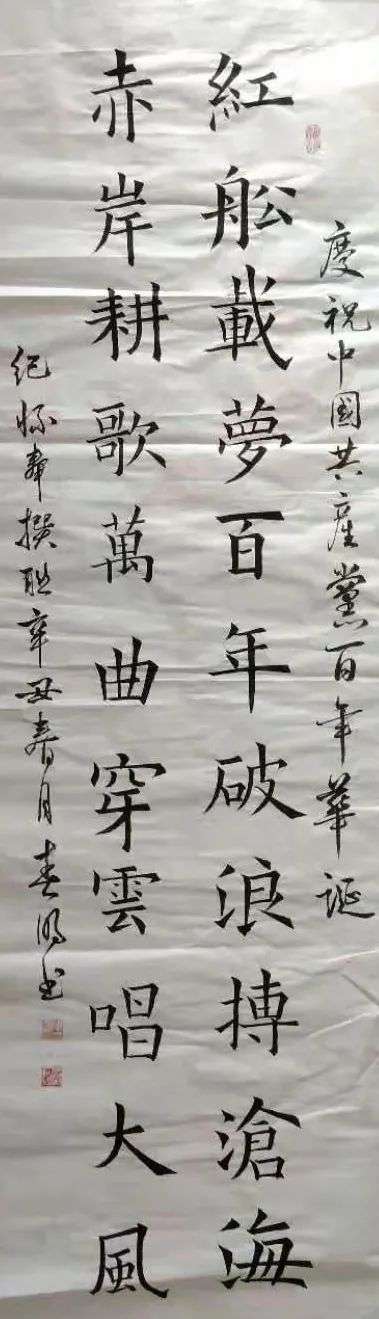 慶祝中國共產黨百年華誕
紅舩載夢百年破浪搏滄海
赤岸耕歌萬曲穿雲唱大風
紀懷奉撰联辛丑春月春鴻书